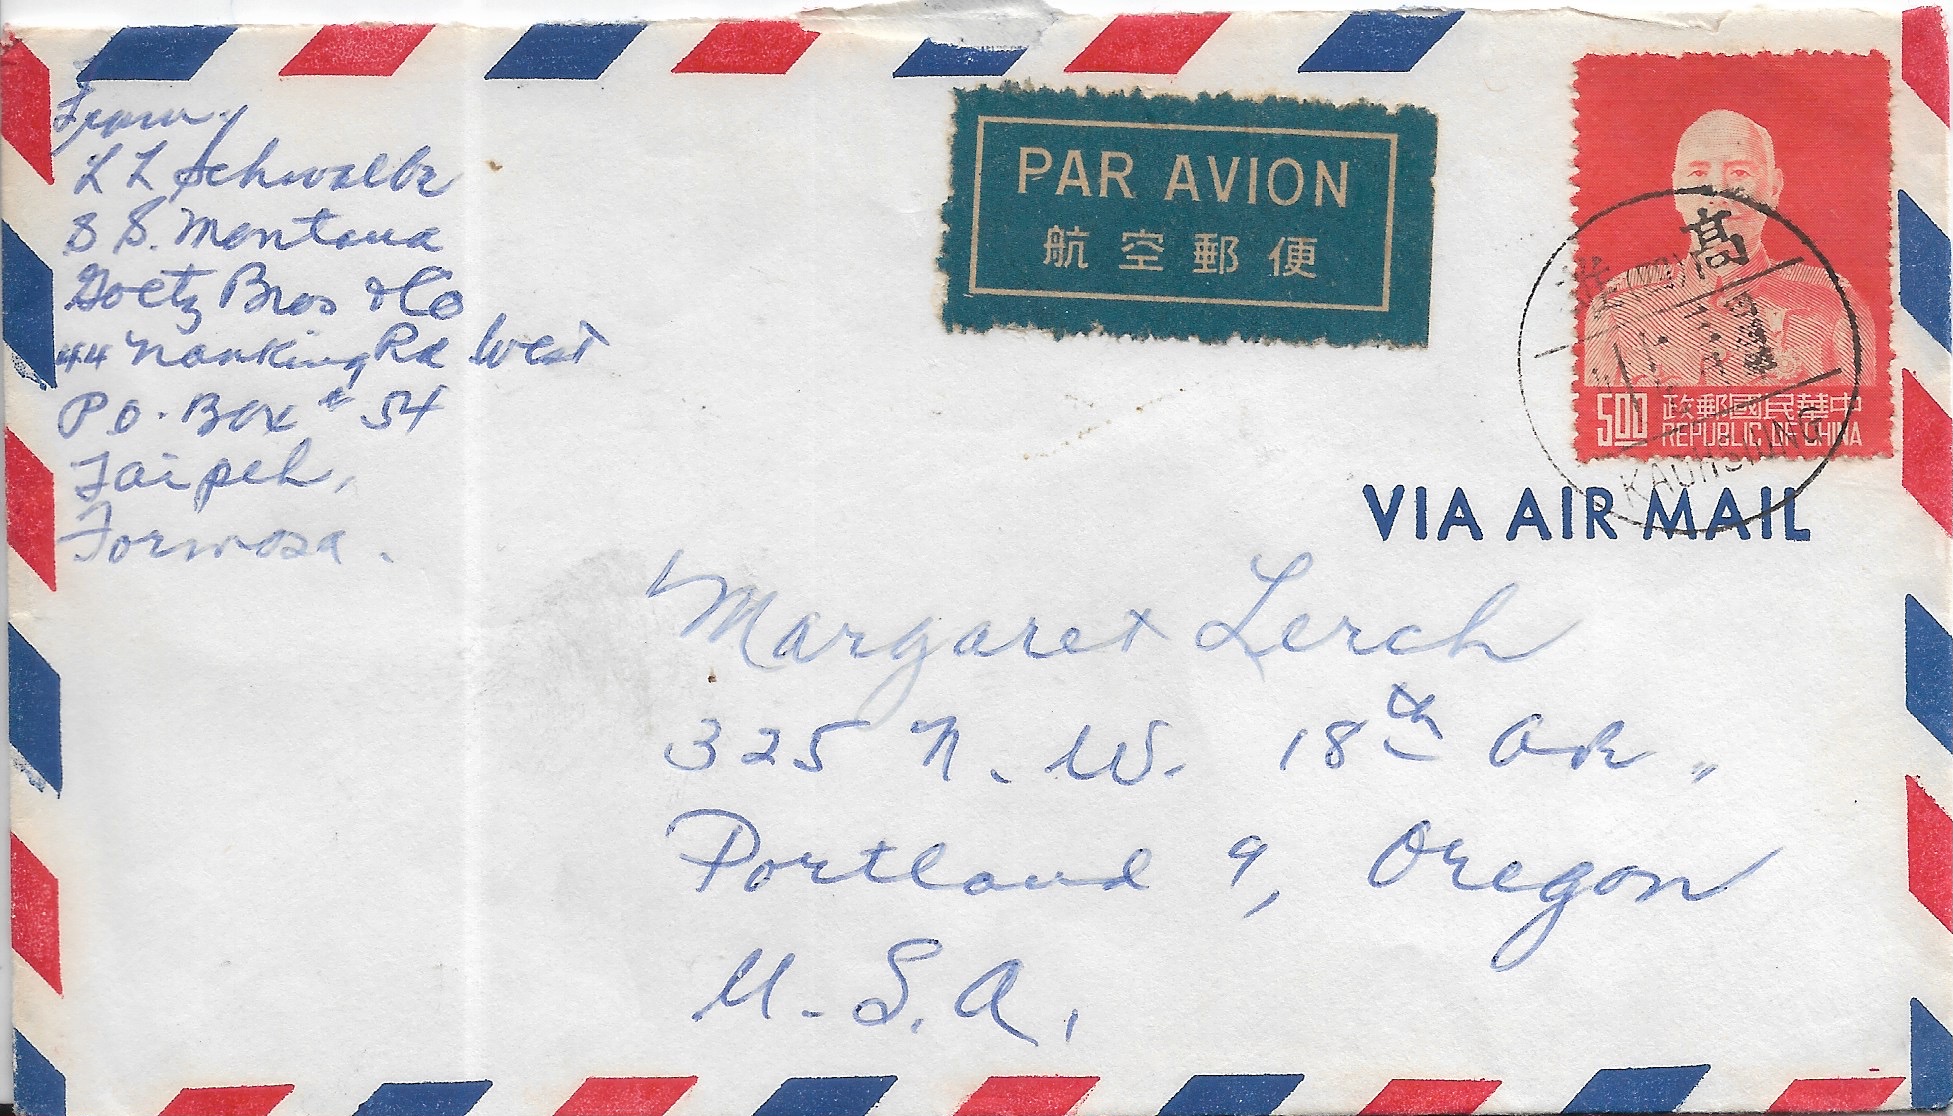 From,
L L Schwalbe
S S. Montana
Goetz Bros & Co
44 Nanking Rd West
P O. Box # 54
Taipeh,
Formosa.
PAR AVION
航空郵便
高
500
政郵國民華中
REPUBLIC OF CHINA
KAOHSIUNG
VIA AIR MAIL
Margaret Lerch
325 N. W. 18th Ave.,
Portland 9, Oregon
U. S. A.